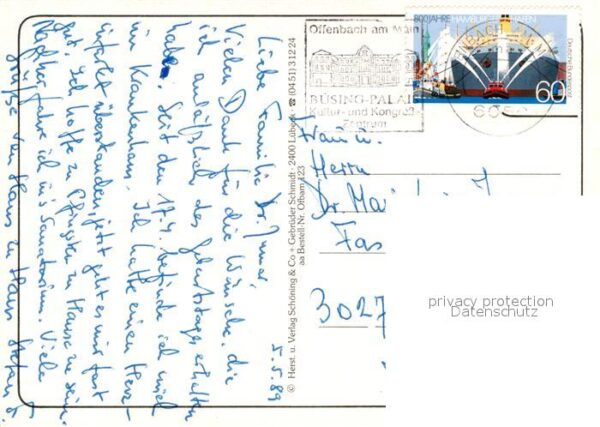 5.5.89
Liebe Familie Dr.
Vielen Dank für die Wünsche, die
ich anläßlich des Geburtstages erhalten
habe. Seit den 17.4. befinde ich mich
im Krankenhaus. Ich hatte einen Herz-
infarkt überstanden, jetzt geht es mir fast
gut. Ich hoffe zu Pfingsten zu Hause zu sein.
Nachher fahre ich in's Sanatorium. Viele
Grüße von Haus zu Haus Stefan
© Herst. u. Verlag Schöning & Co + Gebrüder Schmidt · 2400 Lübeck · ☎ 0451/31 12 24
aa Bestell-Nr. Ofbam 123
Offenbach am Main
BÜSING-PALAIS
Kultur- und Kongreß-
Zentrum
800 JAHRE HAMBURGER HAFEN
Deutsche Bundespost
60
Frau u.
Herrn
Dr
Fas
3027
privacy protection
Datenschutz